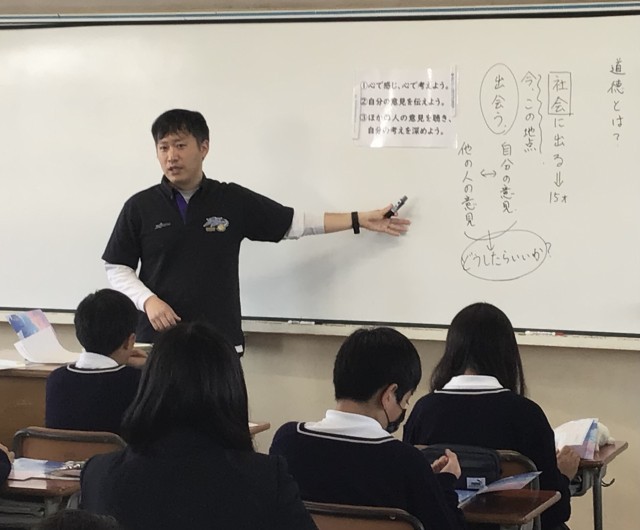 道徳とは?
社会に出る⇒15才
今、この地点
出会う
自分の意見
↔
他の人の意見
どうしたらいいか?
①心で感じ、心で考えよう。
②自分の意見を伝えよう。
③ほかの人の意見を聴き、
自分の考えを深めよう。